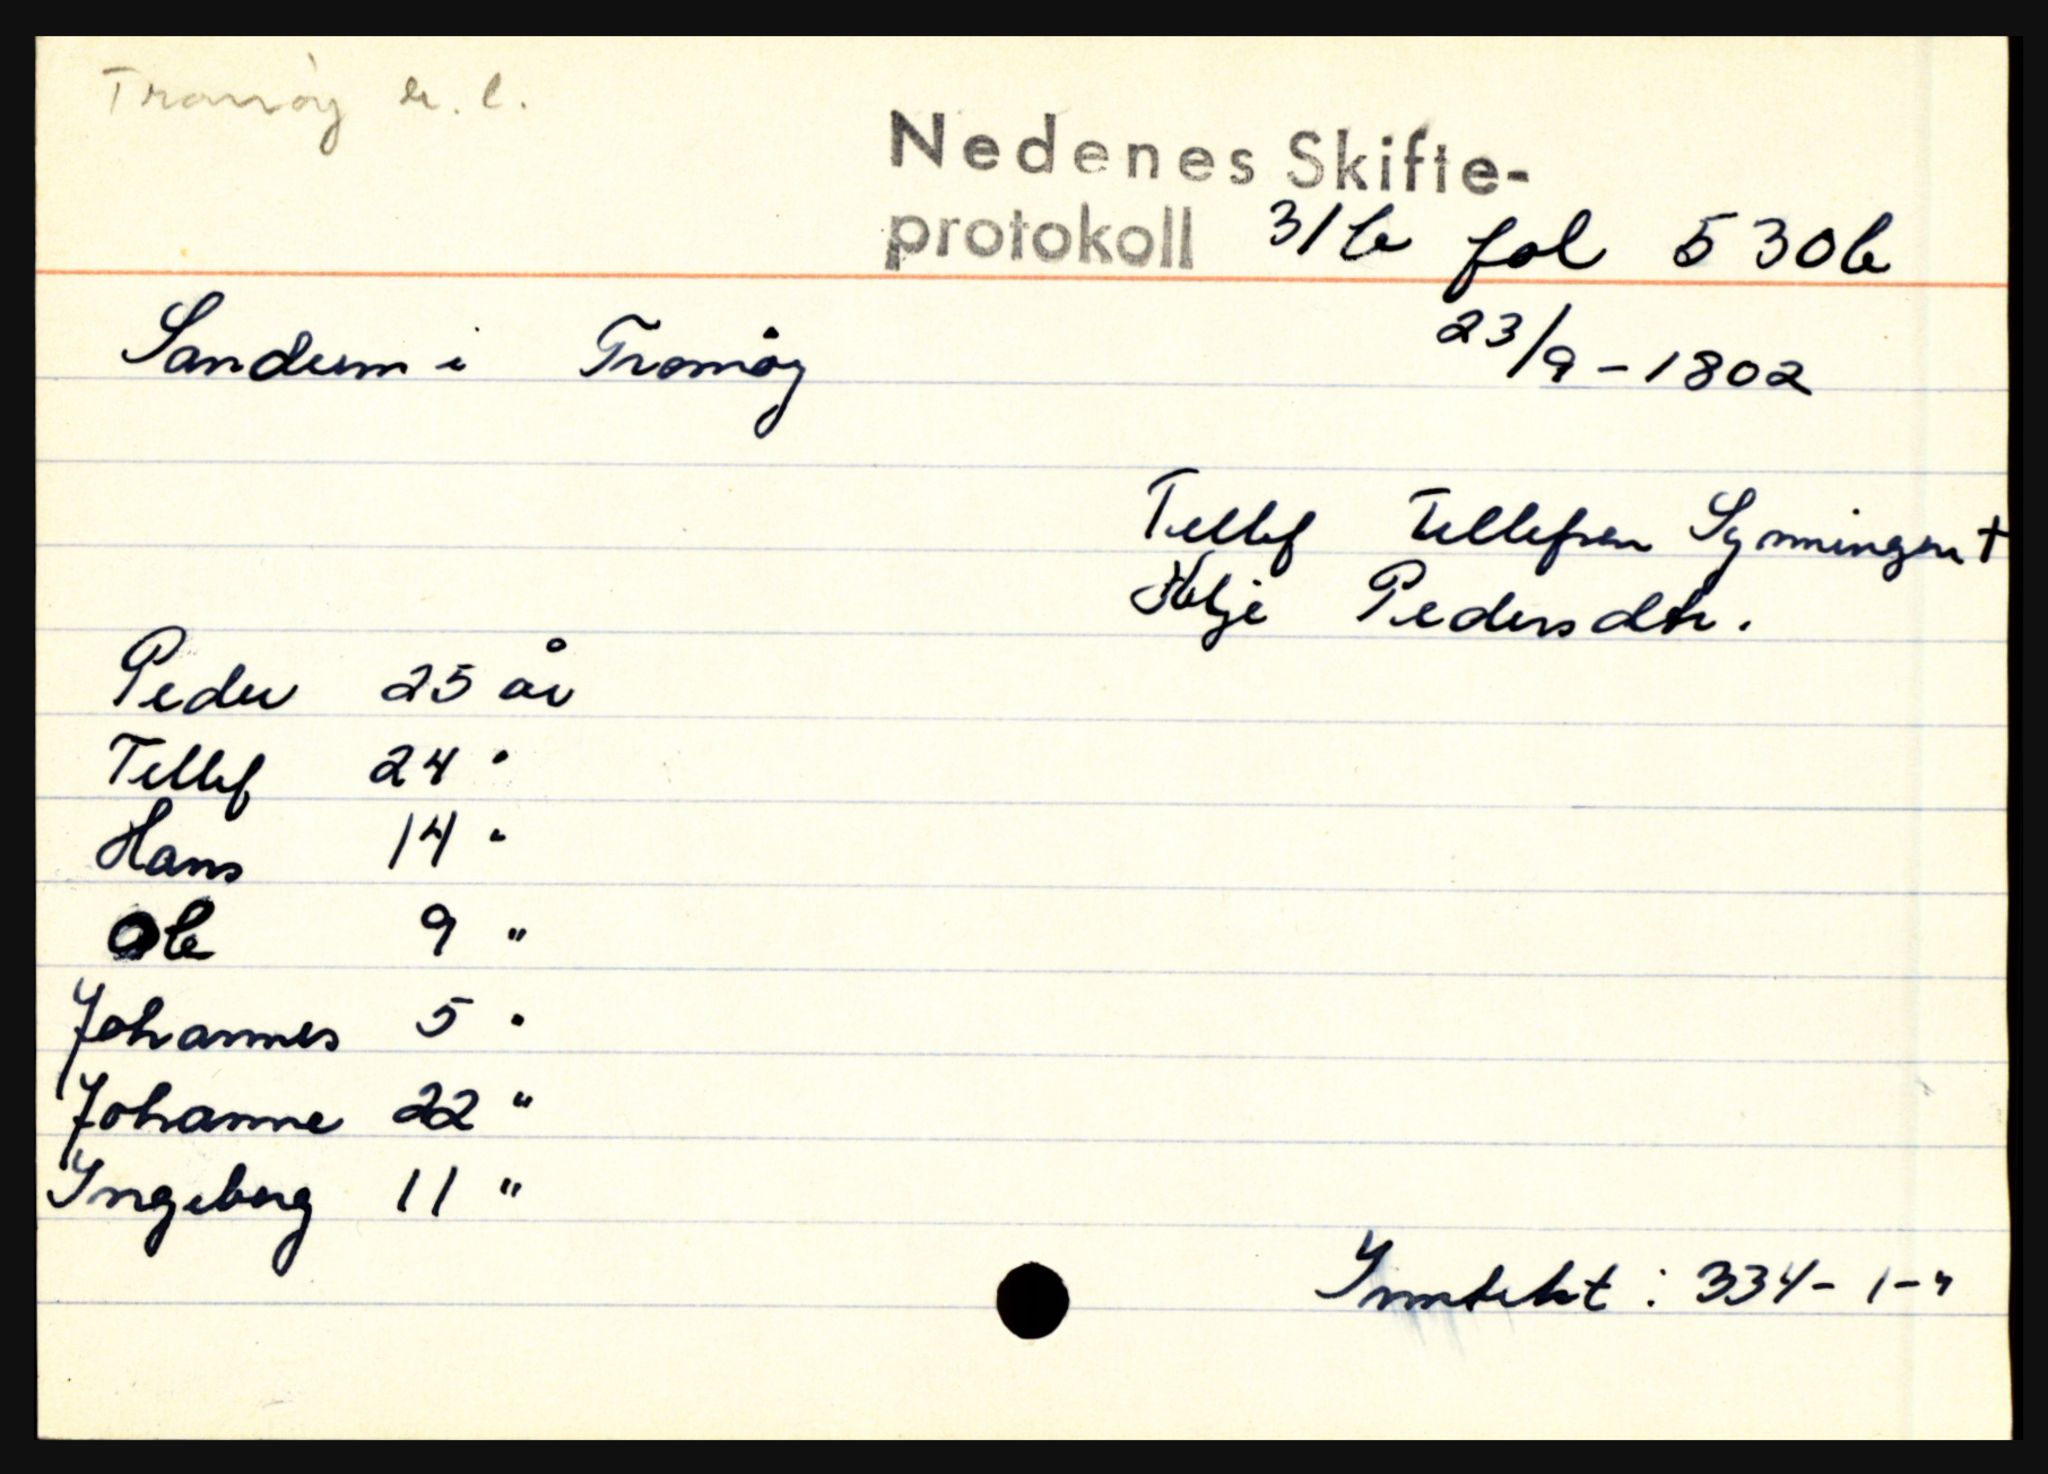 Tromöy k. l.
Nedenes Skifte-
protokoll 31b fol 530b
Sandum i Tromöy 23/9-1802
Tellef Tellefsen Synningen +
Helje Pedersdtr.
Peder 25 år
Tellef 24 "
Hans 14 "
Ole 9 "
Johannes 5 "
Johanne 22 "
Ingeborg 11 "
Inntekt: 334-1-"